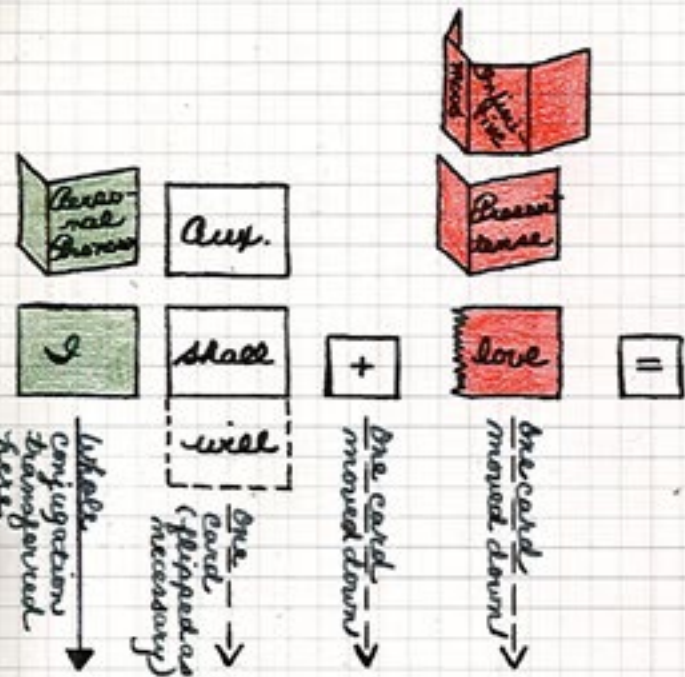 Mood
Infini-
tive
Perso-
nal
Pronoun
Aux.
Present
tense
I
shall
+
love
=
will
Whole
conjugation
transferred
here
One
card
(flipped as
necessary)
One card
moved down
One card
moved down